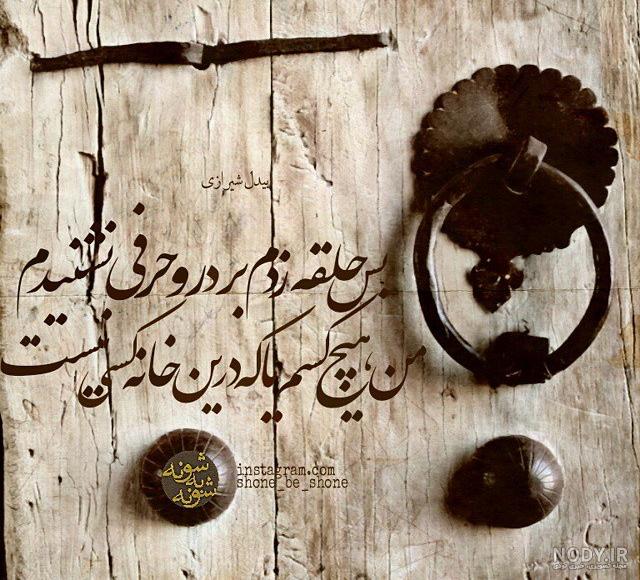 بیدل شیرازی
بس حلقه زدم بر در و حرفی نشنیدم
من هیچ کسم یا که درین خانه کسی نیست
شونه
به
شونه
instagram.com
shone_be_shone
NODY.IR